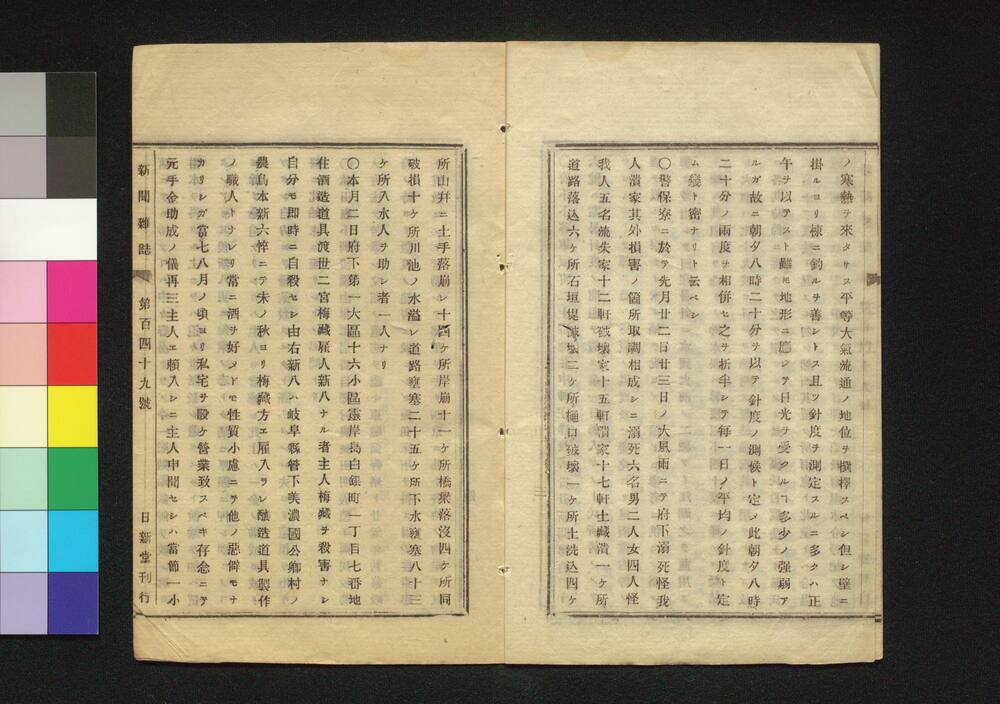 ノ寒熱ヲ來タサス平等大氣流通ノ地位ヲ撰擇スベシ但シ壁ニ
掛ルヨリ棟ニ釣ルヲ善シトス且ツ針度ヲ測定スルニ多クハ正
午ヲ以テスト雖𪜈地形ニ應シテ日光ヲ受クルヿ多少ノ強弱ア
ルガ故ニ朝夕八時二十分ヲ以テ針度ノ測候ト定メ此朝夕八時
二十分ノ兩度ヲ相併セ之ヲ折半シテ毎一日ノ平均ノ針度ト定
ム幾ト密ナリト云ベシ
〇警保寮ニ於テ先月廿二日廿三日ノ大風雨ニテ府下溺死怪我
人潰家其外損害ノ箇所取調相成シニ溺死六名男二人女四人怪
我人五名流失家十二軒破壞家十五軒潰家十七軒土藏潰一ケ所
道路落込六ケ所石垣堤潰壞二ケ所樋口破壞一ケ所土洗込四ケ
所山幷ニ土手落崩シ十四ケ所岸崩十一ケ所橋梁落沒四ケ所同
破損十ケ所川池ノ水溢レ道路壅塞二十五ケ所下水壅塞八十三
ケ所入水人ヲ助シ者一人ナリ
〇本月二日府下第一大區十六小區靈岸島白銀町一丁目七番地
住酒造道具渡世二宮梅藏雇人新八ナル者主人梅藏ヲ殺害ナシ
自分モ即時ニ自殺セシ由右新八ハ岐阜縣管下美濃國公鄕村ノ
農鳥本新六悴ニテ未ノ秋ヨリ梅藏方エ雇入ラレ釀造道具製作
ノ職人トナレリ常ニ酒ヲ好メトモ性質小慮ニテ他ノ惡僻モナ
カリシガ當七八月ノ頃ヨリ私宅ヲ設ケ營業致スベキ存念ニテ
元手金助成ノ儀再三主人エ賴入シニ主人申聞セシハ當節一小
新聞雜誌 第百四十九號 日新堂刊行